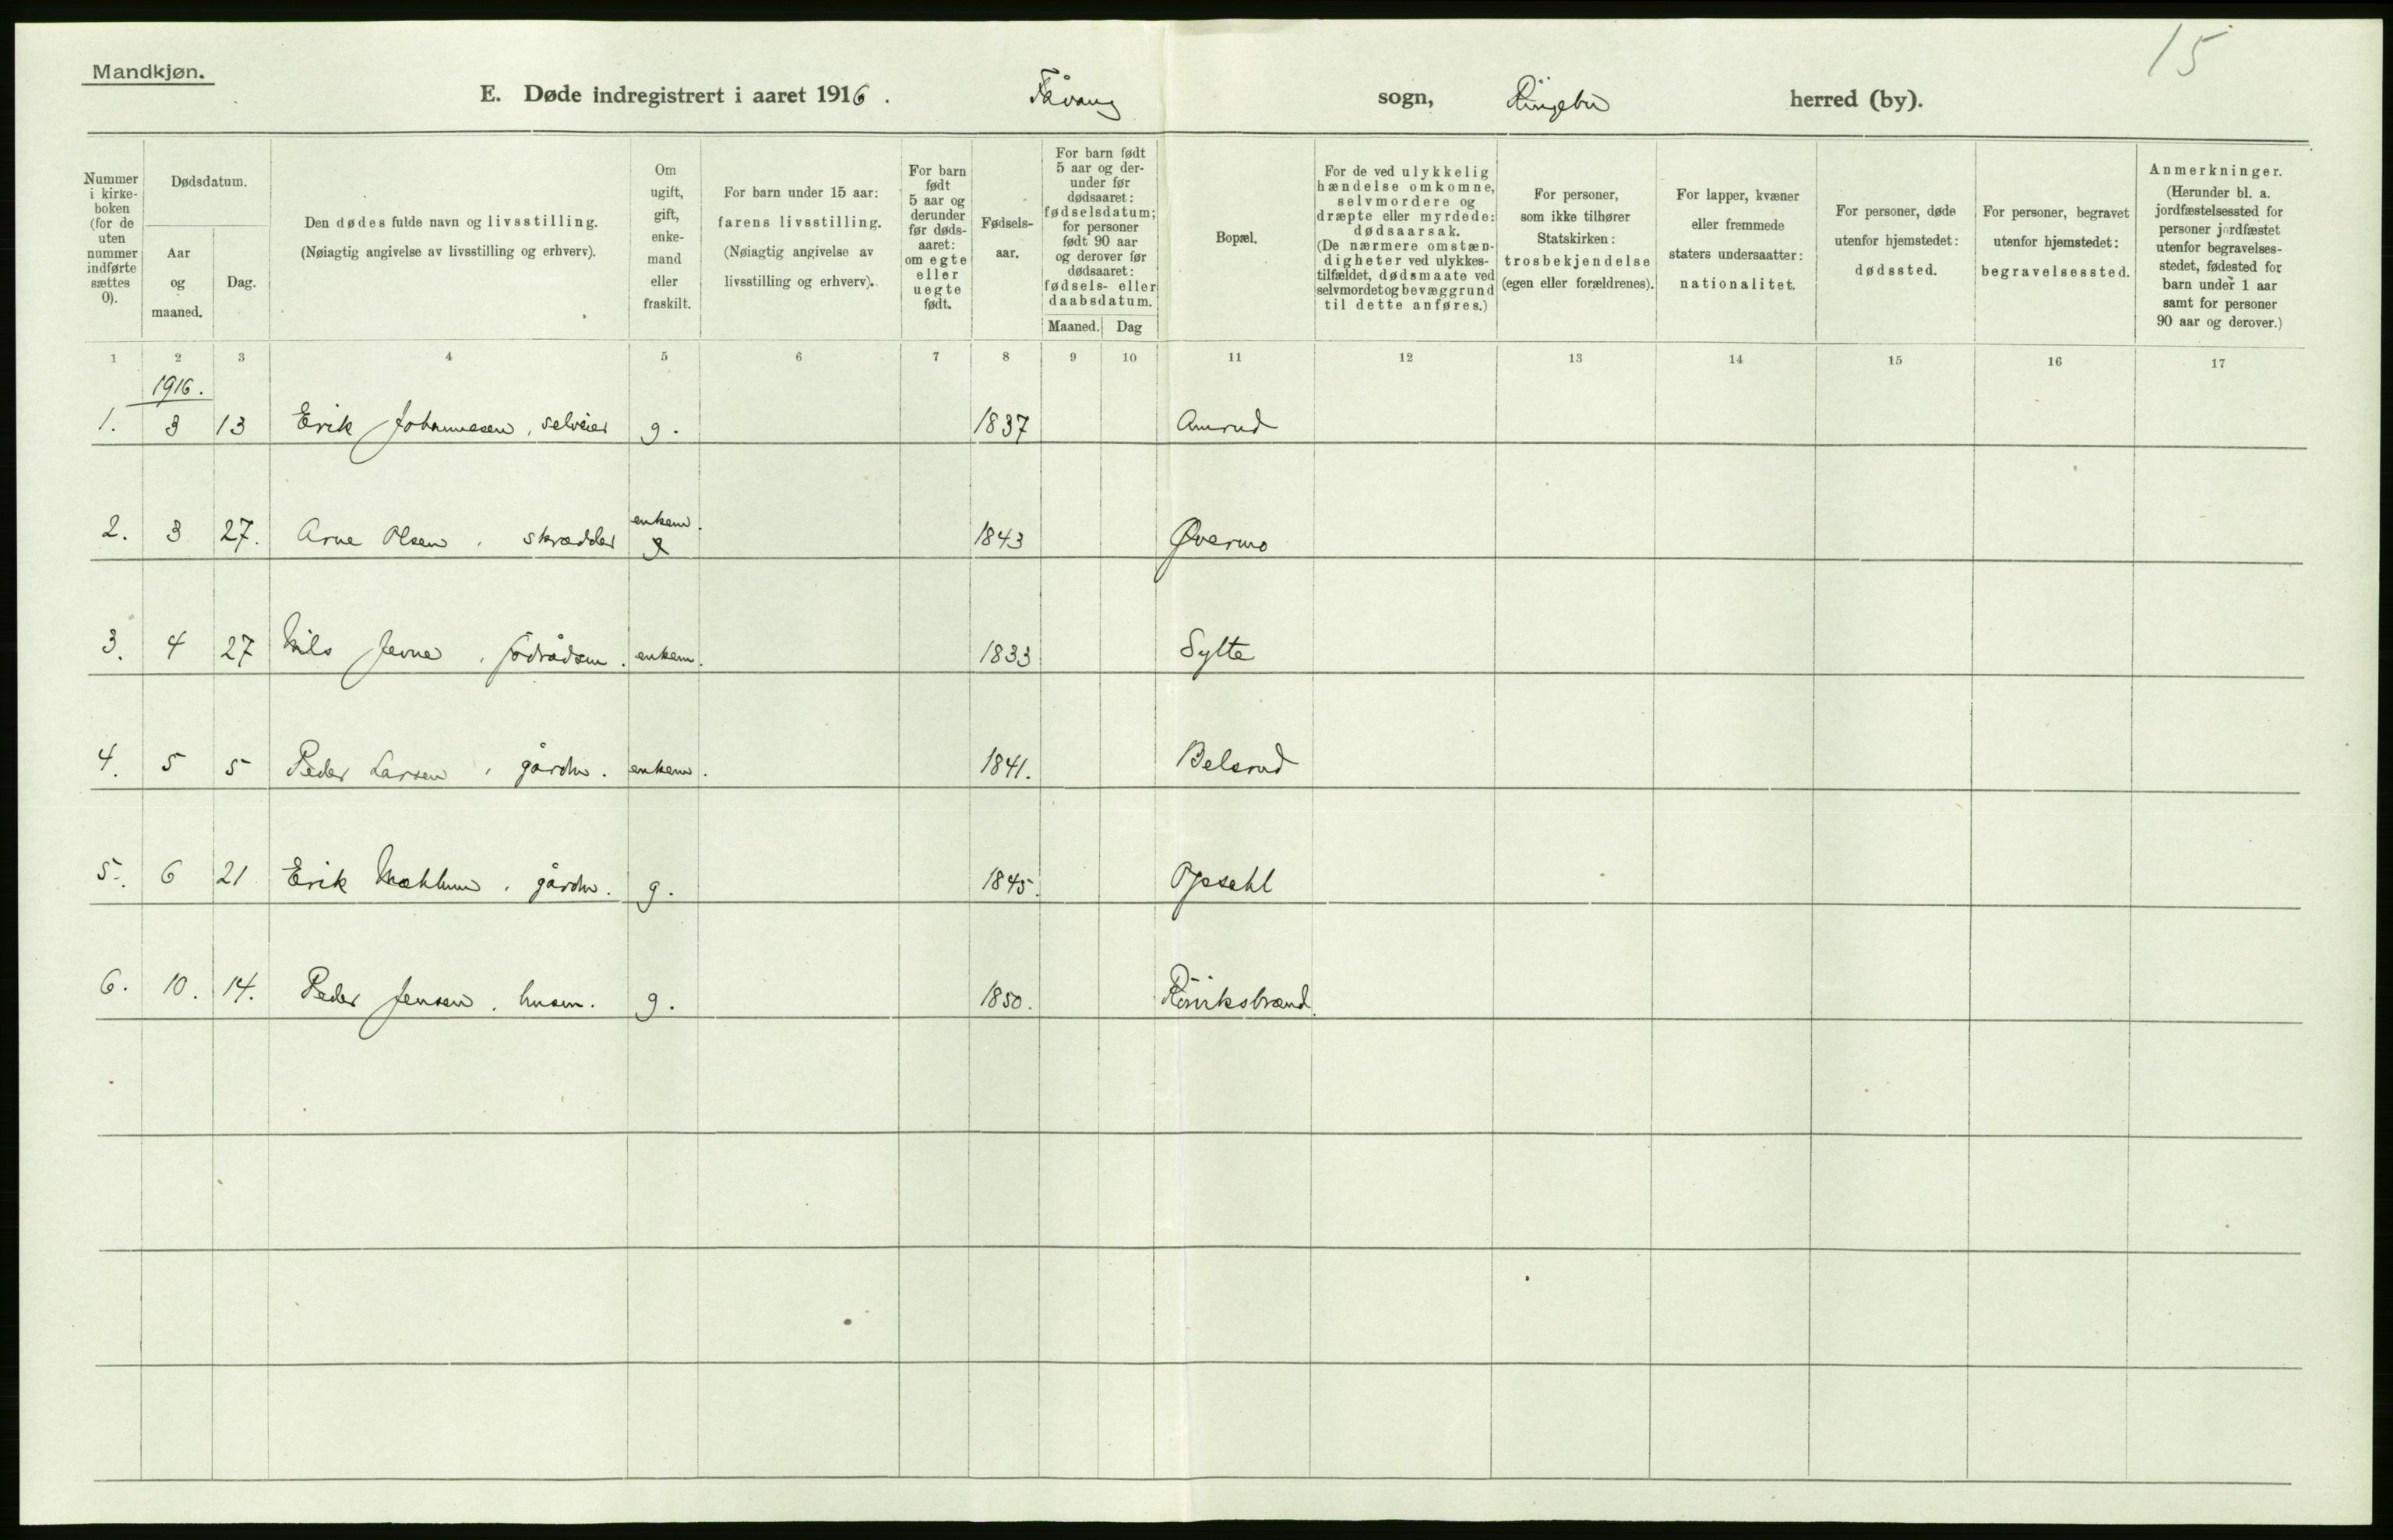 15
Mandkjøn.
E. Døde indregistrert i aaret 1916. Fåvang sogn, Ringebu herred (by).
Nummer i kirkeboken (for de uten nummer indførte sættes 0).
Dødsdatum.
Aar og maaned.
Dag.
Den dødes fulde navn og livsstilling.
(Nøiagtig angivelse av livsstilling og erhverv).
Om ugift, gift, enkemand eller fraskilt.
For barn under 15 aar: farens livsstilling.
(Nøiagtig angivelse av livsstilling og erhverv).
For barn født 5 aar og derunder før dødsaaret: om egte eller uegte født.
Fødselsaar.
For barn født 5 aar og derunder før dødsaaret: fødselsdatum; for personer født 90 aar og derover før dødsaaret: fødsels- eller daabsdatum.
Maaned. Dag
Bopæl.
For de ved ulykkelig hændelse omkomne, selvmordere og dræpte eller myrdede: dødsaarsak.
(De nærmere omstændigheter ved ulykkestilfældet, dødsmaate ved selvmordet og bevæggrund til dette anføres.)
For personer, som ikke tilhører Statskirken: trosbekjendelse (egen eller forældrenes).
For lapper, kvæner eller fremmede staters undersaatter: nationalitet.
For personer, døde utenfor hjemstedet: dødssted.
For personer, begravet utenfor hjemstedet: begravelsessted.
Anmerkninger.
(Herunder bl. a. jordfæstelsessted for personer jordfæstet utenfor begravelsesstedet, fødested for barn under 1 aar samt for personer 90 aar og derover.)
1 2 3 4 5 6 7 8 9 10 11 12 13 14 15 16 17
1916.
1. 3 13 Erik Johannesen, selveier g. 1837 Amrud
2. 3 27. Arne Olsen, skrædder enkem. g 1843 Øvermo
3. 4 27 Nils Jevne, födrådsm. enkem. 1833 Sylte
4. 5 5 Peder Larsen, gårdm. enkem. 1841. Belsrud
5. 6 21 Erik Mæhlum, gårdm. g. 1845. Opsahl
6. 10. 14. Peder Jensen, husm. g. 1850. Röviksbrænd.